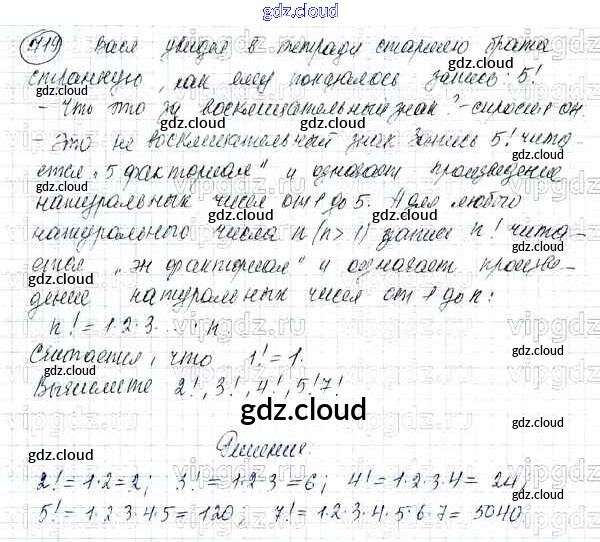 gdz.cloud
719 Вася увидел в тетради старшего брата
странную, как ему показалось запись: 5!
- Что это за восклицательный знак? - спросил он.
- Это не восклицательный знак Запись 5! чита-
ется „5 факториал" и означает произведение
натуральных чисел от 1 до 5. А для любого
gdz.cloud gdz.cloud
натурального числа n (n > 1) запись n! чита-
ется „эн факториал" и означает произве-
дение натуральных чисел от 1 до n:
gdz.cloud gdz.cloud
n! = 1·2·3. . . · n
Считается, что 1! = 1.
gdz.cloud gdz.cloud
Вычислите 2!, 3!, 4!, 5! 7!
gdz.cloud
Решение.
gdz.cloud gdz.cloud
2! = 1·2 = 2; 3! = 1·2·3 = 6; 4! = 1·2·3·4 = 24;
5! = 1·2·3·4·5 = 120; 7! = 1·2·3·4·5·6·7 = 5040
gdz.cloud gdz.cloud
vipgdz.ru